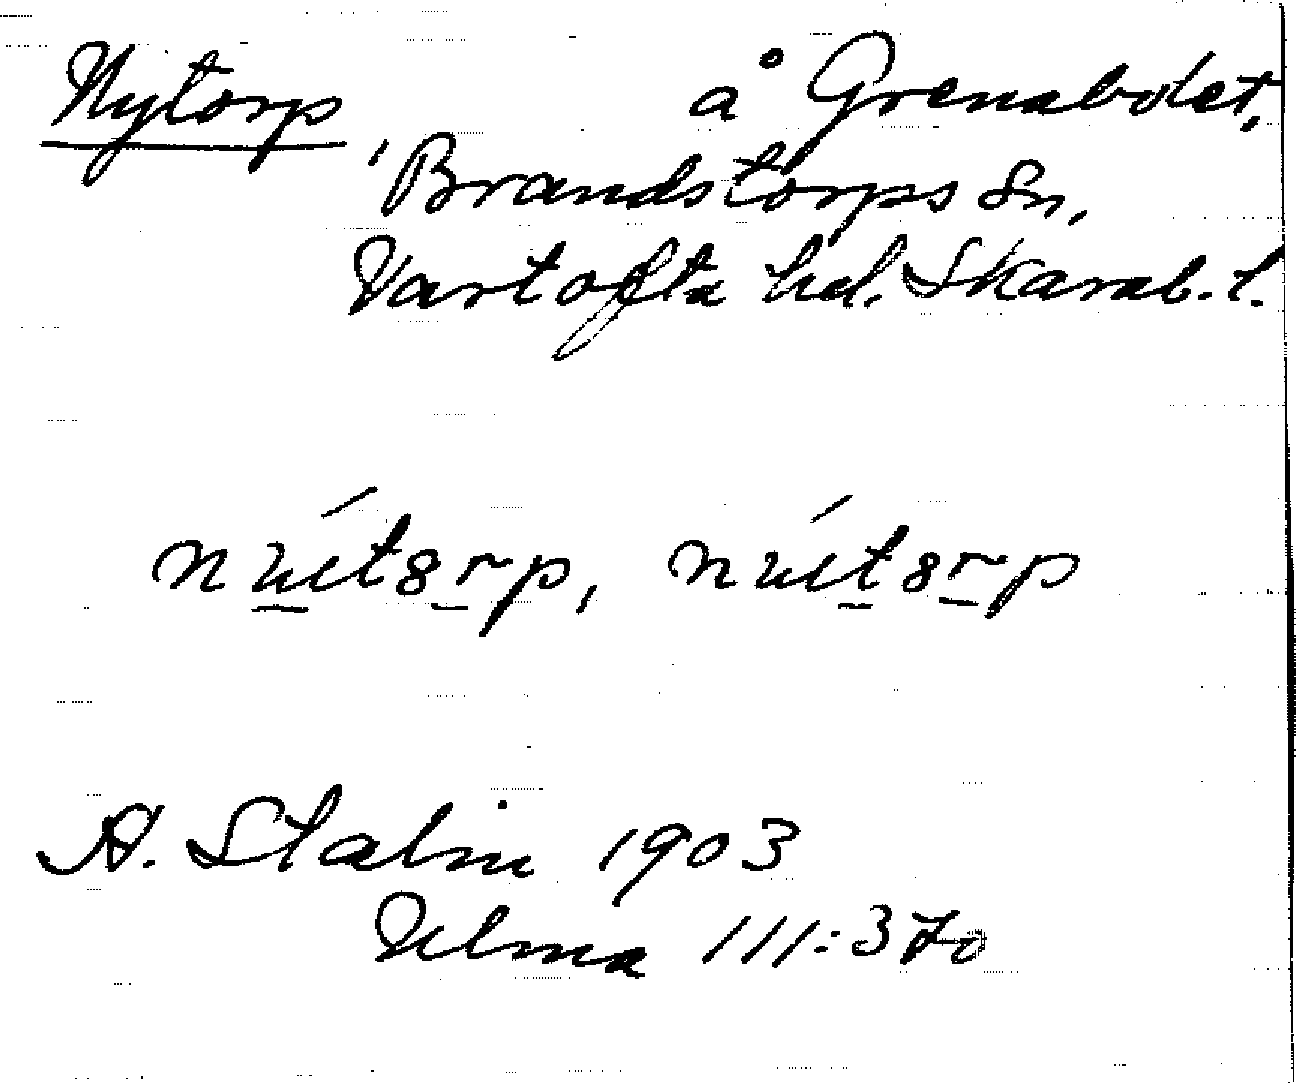 Nytorp å Grenabolet,
Brandstorps sn,
Vartofta hd. Skarab. l.
A. Stalin 1903
Ulma 111:370